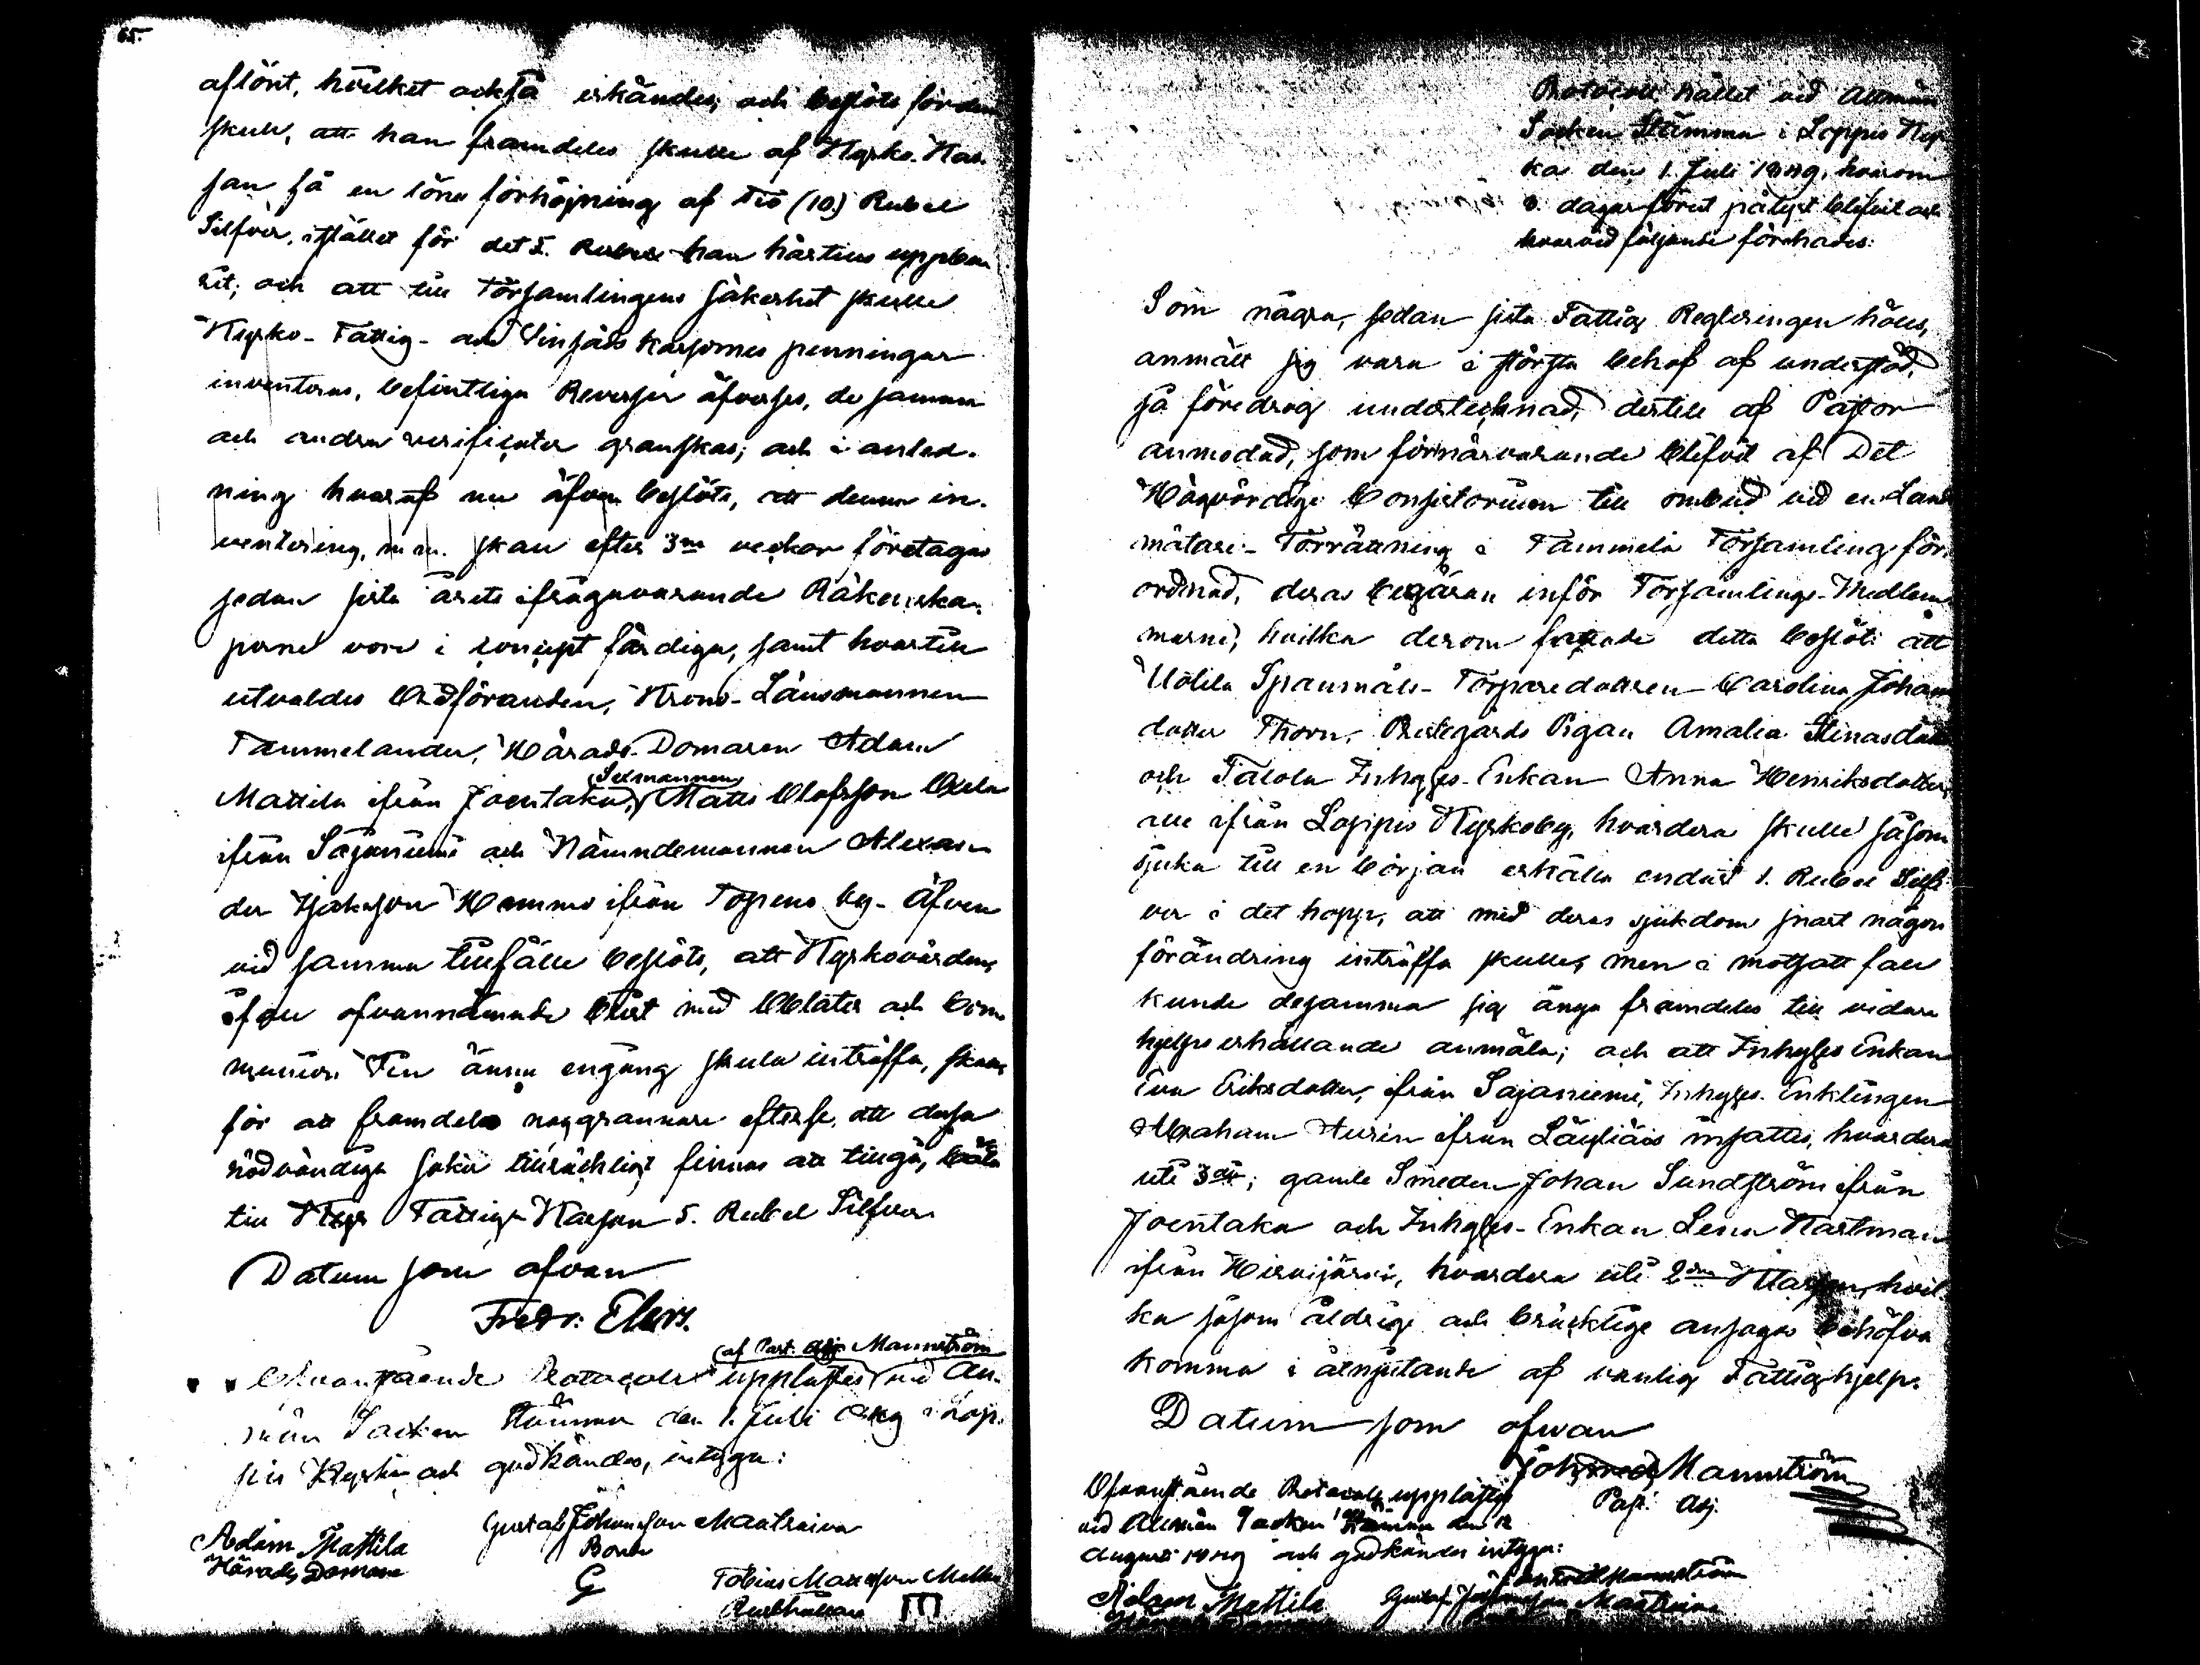 65.
aflönt, hvilket också erkändes, och beslöts för den
skull, att han framdeles skulle af Kyrko-Kas-
san få en löne förhöjning af Tio (10) Rubel
Silfver, istället för det 5. Rubel han härtills uppbu-
rit; och att till Församlingens säkerhet skulle
Kyrko- Fattig- och Linsäds kassornes penningar
inventeras, befintliga Reverser öfverses, de samma
och andra verificater granskas; och i anled-
ning hvaraf nu äfven beslöts, att denna in-
ventering, m.m. skall efter 3ne veckor företagas
sedan sista årets ifrågavarande Räkenska-
perne voro i concept färdiga, samt hvartill
utvaldes Ordföranden, Krono-Länsmannen
Tammelander, Härads-Domaren Adam
Mattila ifrån Joentaka, Sexmannen Matts Olofsson Oxela
ifrån Sajaniemi och Nämndemannen Alexan-
der Isaksson Hemmo ifrån Topeno by. Äfven
vid samma tillfälle beslöts, att Kyrkovärden,
if all ofvannämnde brist med Oblater och Com-
munion Vin ännu engång skulle inträffa, skall
för att framdeles noggrannare efterse, att dessa
nödvändiga saker tillräckligt finnas att tillgå, böta
till Kyrko Fattig-Kassan 5. Rubel Silfver.
Datum som ofvan
Fredr: Elers.
Ofvanstående Protocoll upplästes af Past. Adj. Mannström vid All-
män Socken Stämma den 1. Juli 1849 i Lop-
pis Kyrka och godkändes, intyga:
Adam Mattila
Härads Domare
Gustaf Johansson Maatraiva
Bonde
G
Tobias Mattsson
Rusthållare
Protocoll hållet vid Allmän
Socken Stämma i Loppis Kyr-
ka den 1. Juli 1849, hvarom
8. dagar förut pålyst blifvit och
hvarvid följande förehades:
Som några, sedan sista Fattig Regleringen hölls,
anmält sig vara i största behof af understöd,
så föredrog undertecknad, dertill af Pastor
anmodad, som för närvarande blifvit af Det
Högvördige Consistorium till ombud vid en Land-
mätare-Förrättning i Tammela Församling för-
ordnad, deras begäran inför Församlings-Medlem-
marne, hvilka derom fattade detta beslöt: att
Uotila Spannmåls-Torparedottren Carolina Johans-
dotter Thorn, Prestegårds Pigan Amalia Stinasdotter
och Talola Inhyses-Enkan Anna Henriksdotter,
alla ifrån Loppis Kyrkoby, hvardera skulle såsom
sjuka till en början erhålla endast 1. Rubel Silf-
ver i det hopp, att med deras sjukdom snart någon
förändring inträffa skulle, men i motsatt fall
kunde desamma sig ånyo framdeles till vidare
hjelps erhållande anmäla; och att Inhyses Enkan
Eva Eriksdotter, ifrån Sajaniemi, Inhyses-Enklingen
Abraham Aurén ifrån Läyliäis insattes, hvardera
uti 3dje; gamle Smeden Johan Sundström ifrån
Joentaka och Inhyses-Enkan Lena Hartman
ifrån Hirvijärvi, hvardera uti 2dra Klassen, hvil-
ka såsom åldrige och bräcklige ansågos behöfva
komma i åtnjutande af vanlig Fattighjelp.
Datum som ofvan
Joh Fredr Mannström
Past. Adj.
Ofvanstående Protocoll upplästes
vid Allmän Socken Stämma den 12
Augusti 1849 och godkändes intyga:
Joh Fredr Mannström
Adam Mattila
Gustaf Johansson Maatraiva